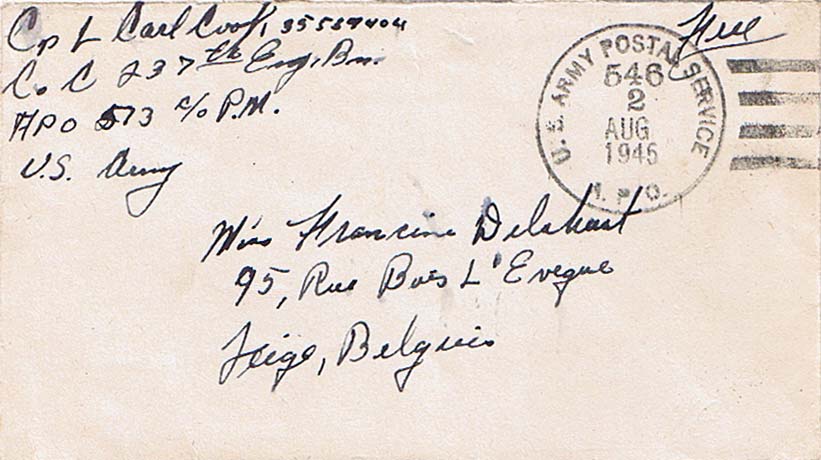 Cpl Carl Cook, 35539404
Co C 237th Eng. Bn.
APO 573 c/o P.M.
U.S. Army
Free
U.S. ARMY POSTAL SERVICE
546
2
AUG
1945
A.P.O.
Miss Francine Delahaut
95, Rue Bois L'Eveque
Leige, Belguim